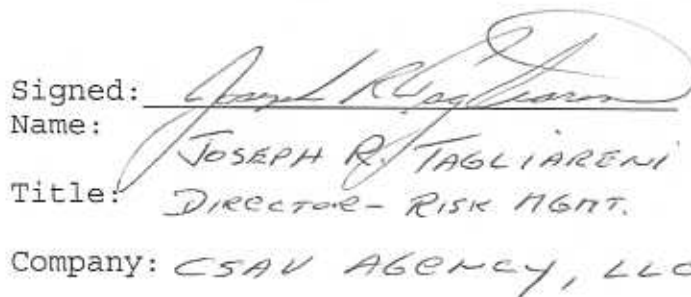 Signed: Joseph R. Tagliareni
Name: JOSEPH R. TAGLIARENI
Title: DIRECTOR - RISK MGMT.
Company: CSAV AGENCY, LLC